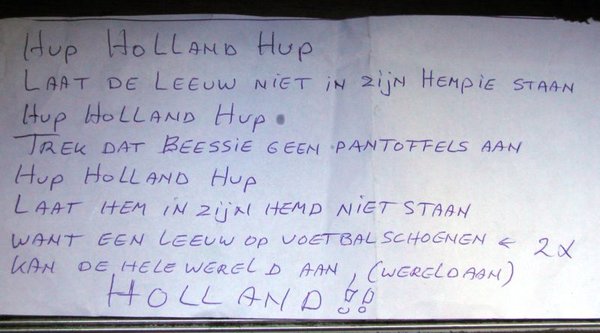 HUP HOLLAND HUP
LAAT DE LEEUW NIET IN ZIJN HEMPIE STAAN
HUP HOLLAND HUP
TREK DAT BEESSIE GEEN PANTOFFELS AAN
HUP HOLLAND HUP
LAAT HEM IN ZIJN HEMD NIET STAAN
WANT EEN LEEUW OP VOETBALSCHOENEN < 2X
KAN DE HELE WERELD AAN, (WERELD AAN)
HOLLAND!!